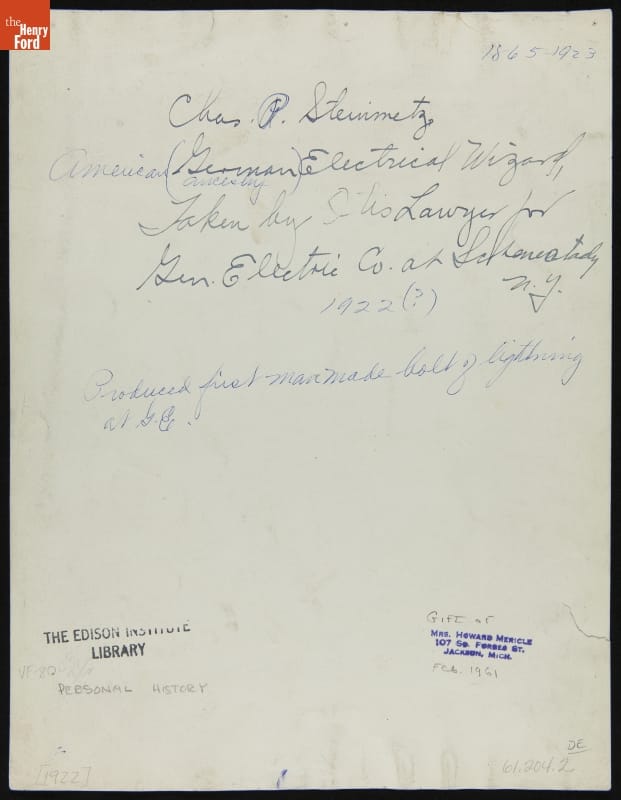 the
Henry
Ford
1865-1923
Chas. P. Steinmetz
American (German) Electrical Wizard,
ancestry
Taken by Lawyer for
Gen. Electric Co. at Schenectady
N.Y.
1922(?)
Produced first man made bolt of lightning
at G.E.
THE EDISON INSTITUTE
LIBRARY
VF-80
PERSONAL HISTORY
GIFT OF
MRS. HOWARD MERICLE
107 SO. FORBES ST.
JACKSON, MICH.
FEB. 1961
DE
61.204.2
[1922]